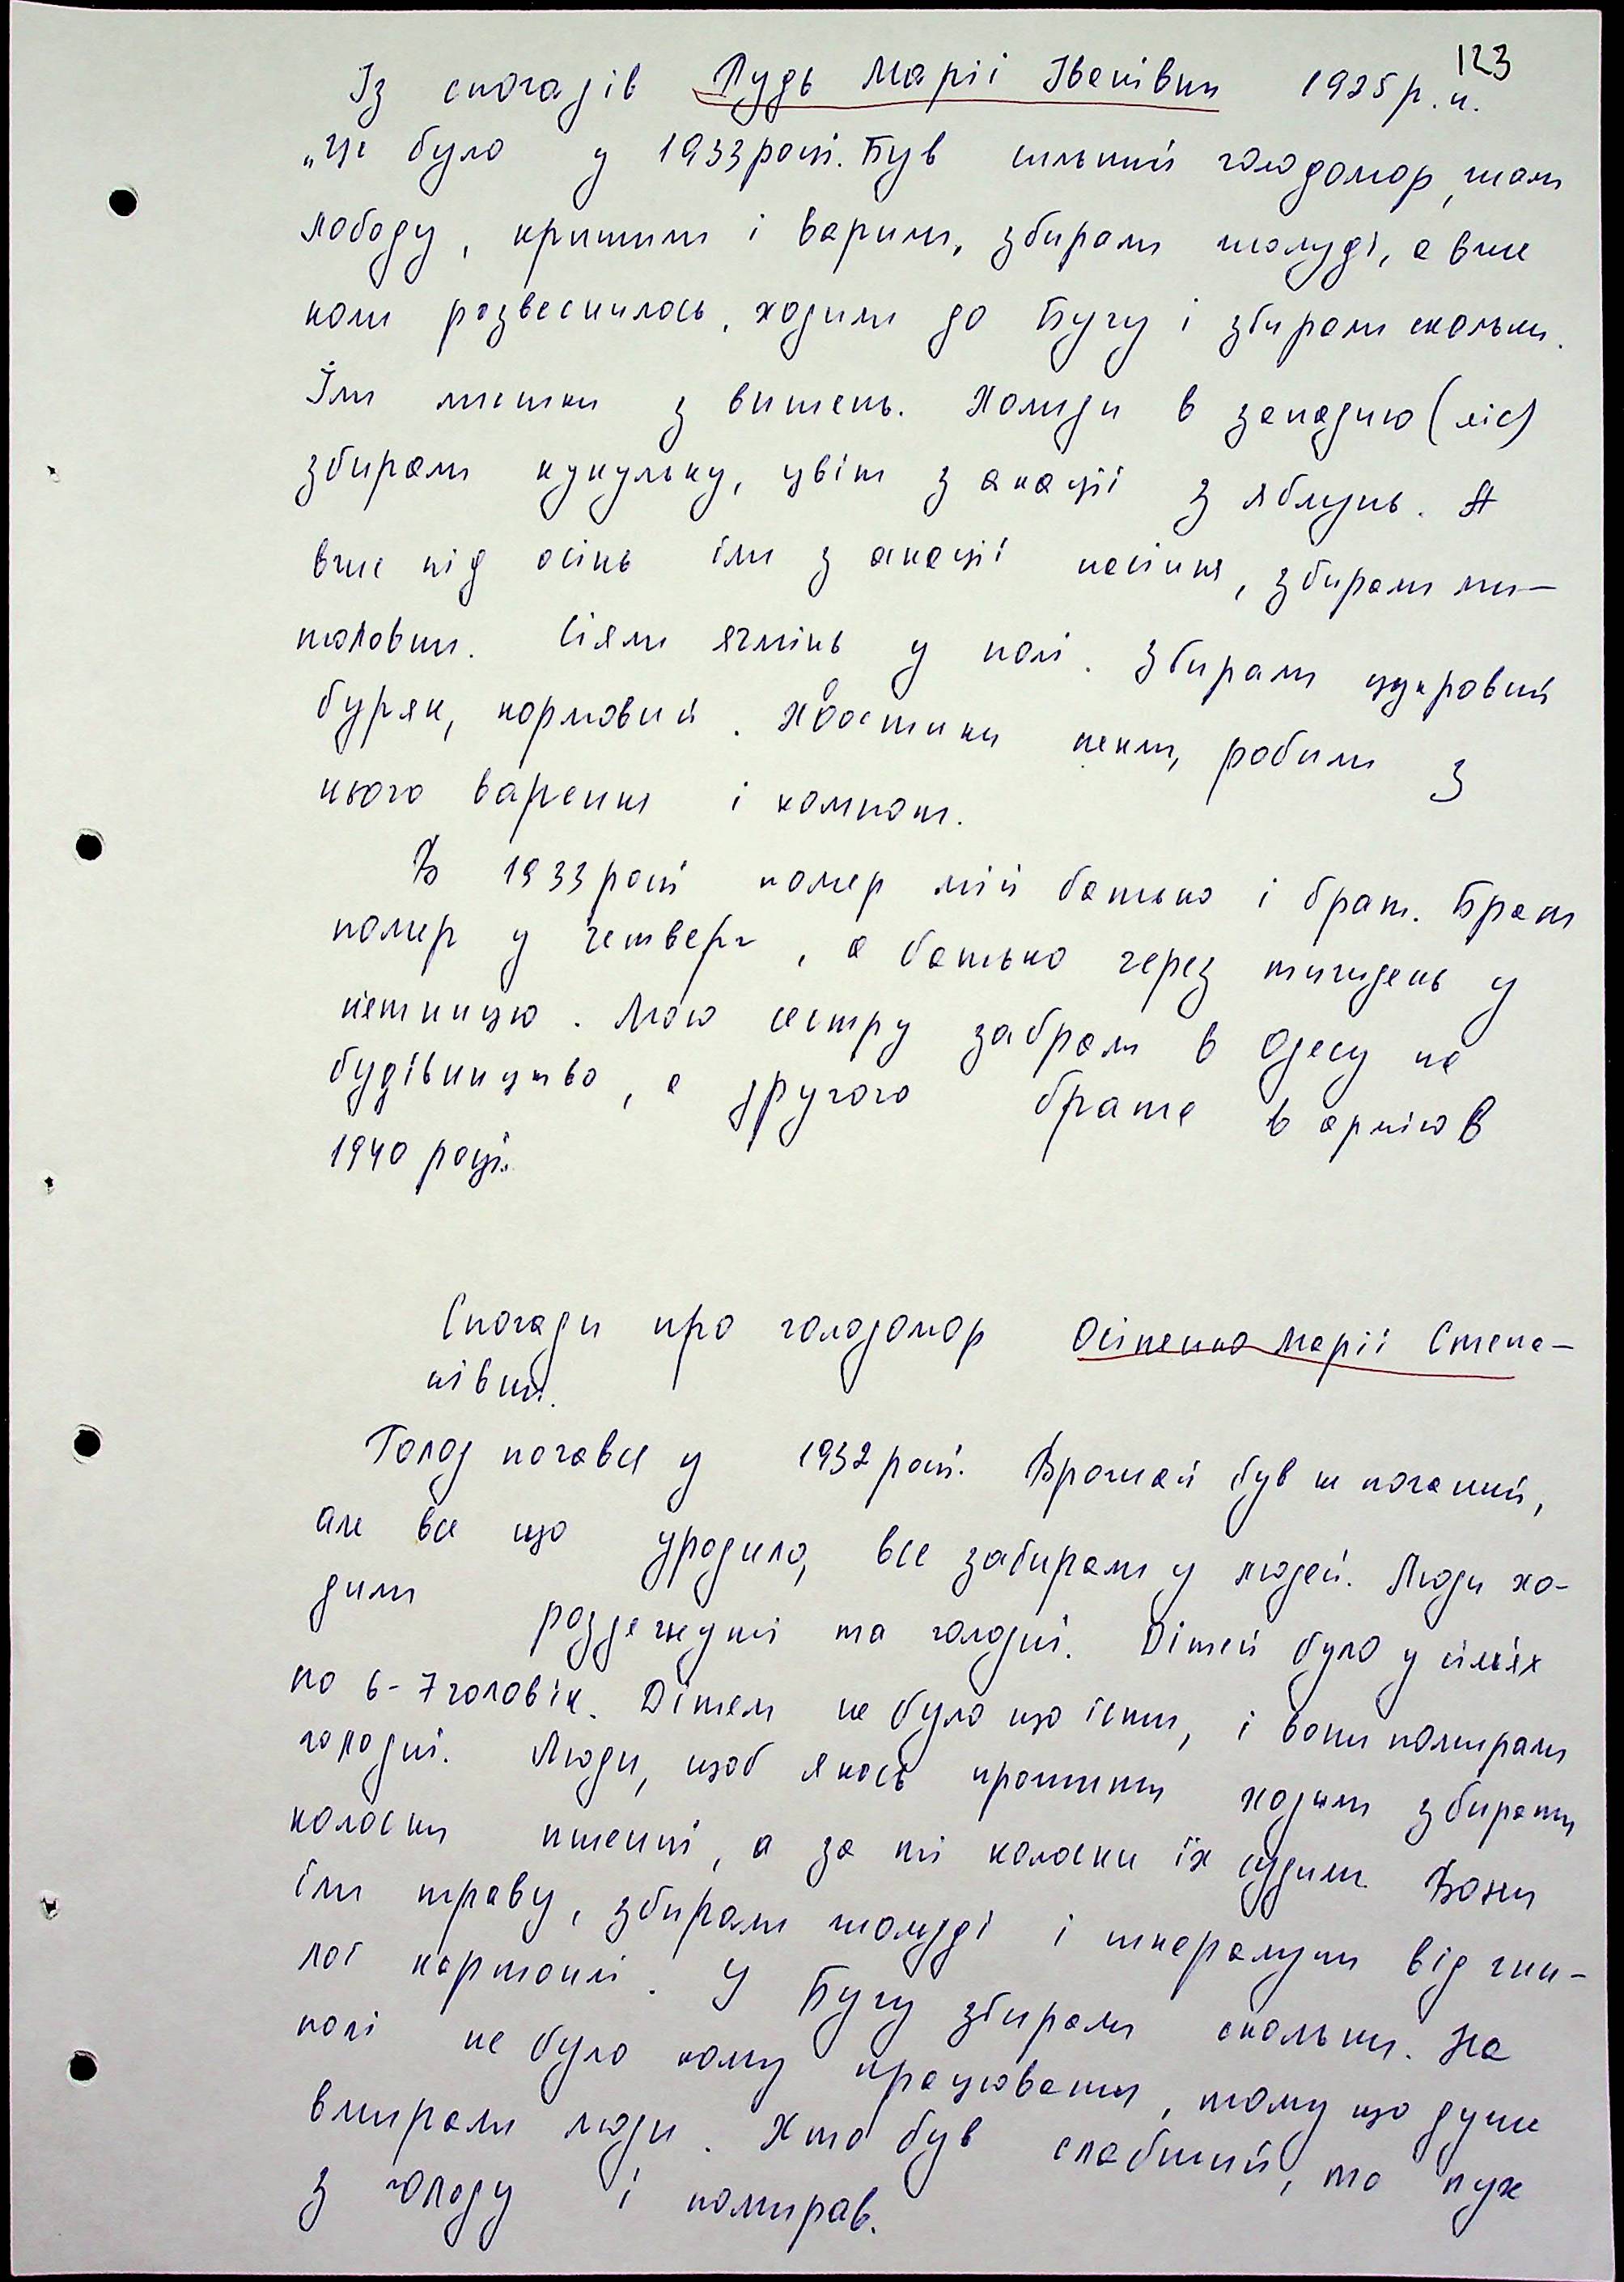 123
Із спогадів Лудь Марії Іванівни 1925 р. н.
„Це було у 1933 році. Був сильний голодомор, їали
лободу, кришили і варили, збирали жолуді, а вже
коли розвеснилось, ходили до Бугу і збирали скальки.
Їли листки з вишень. Ходили в западню (ліс)
збирали кукульку, цвіт з акації з яблунь. А
вже під осінь їли з акації насіння, збирали
половки. Сіяли ячмінь у полі. Збирали цукровий
буряк, кормовий. Хвостики пекли, робили з
нього варення і компот.
В 1933 році помер мій батько і брат. Брат
помер у четверг, а батько через тиждень у
п'ятницю. Мою сестру забрали в Одесу на
будівництво, а другого брата в армію в
1940 році.
Спогади про голодомор Осіпенко Марії Степа-
нівни.
Голод почався у 1932 році. Врожай був не поганий,
але все що уродило, все забирали у людей. Люди хо-
дили роздегнуті та голодні. Дітей було у сім'ях
по 6-7 чоловік. Дітям не було що їсти, і вони помирали
голодні. Люди, щоб якось прожити ходили збирати
колоски пшениці, а за ті колоски їх судили. Вони
їли траву, збирали жолуді і шкаралупи від гни-
лої картоплі. У Бугу збирали скальки. На
полі не було кому працювати, тому що дуже
вмирали люди. Хто був слабший, то пух
з голоду і помирав.